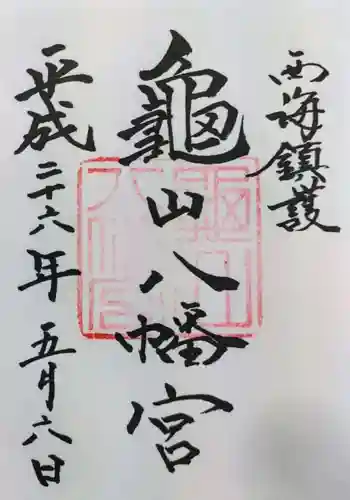 西海鎮護
龜山八幡宮
平成二十六年五月六日